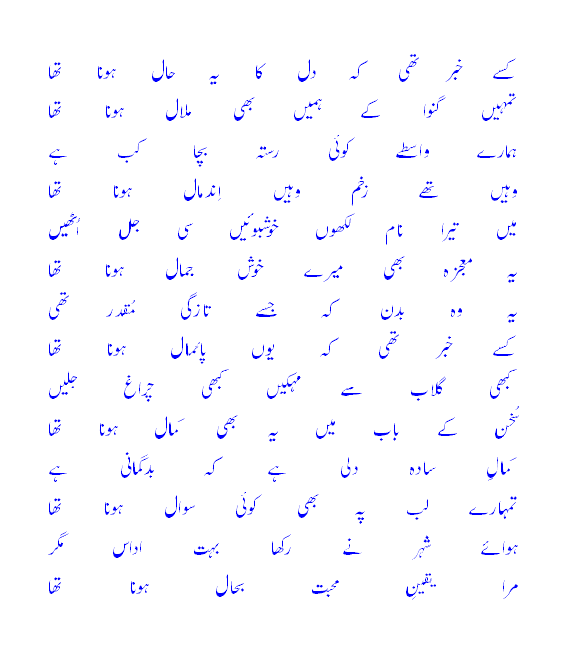 کسے خبر تھی کہ دل کا یہ حال ہونا تھا
تمہیں گنوا کے ہمیں بھی ملال ہونا تھا
ہمارے واسطے کوئی رستہ بچا کب ہے
وہیں تھے زخم وہیں اِندمال ہونا تھا
میں تیرا نام لکھوں خوشبوئیں سی جل اُٹھیں
یہ معجزہ بھی میرے خوش جمال ہونا تھا
یہ وہ بدن کہ جسے تازگی مُقدر تھی
کسے خبر تھی کہ یوں پائمال ہونا تھا
کبھی گلاب سے مہکیں کبھی چراغ جلیں
سُخن کے باب میں یہ بھی کمال ہونا تھا
کمالِ سادہ دلی ہے کہ بدگمانی ہے
تمہارے لب پہ بھی کوئی سوال ہونا تھا
ہوائے شہر نے رکھا بہت اداس مگر
مرا یقینِ محبت بحال ہونا تھا